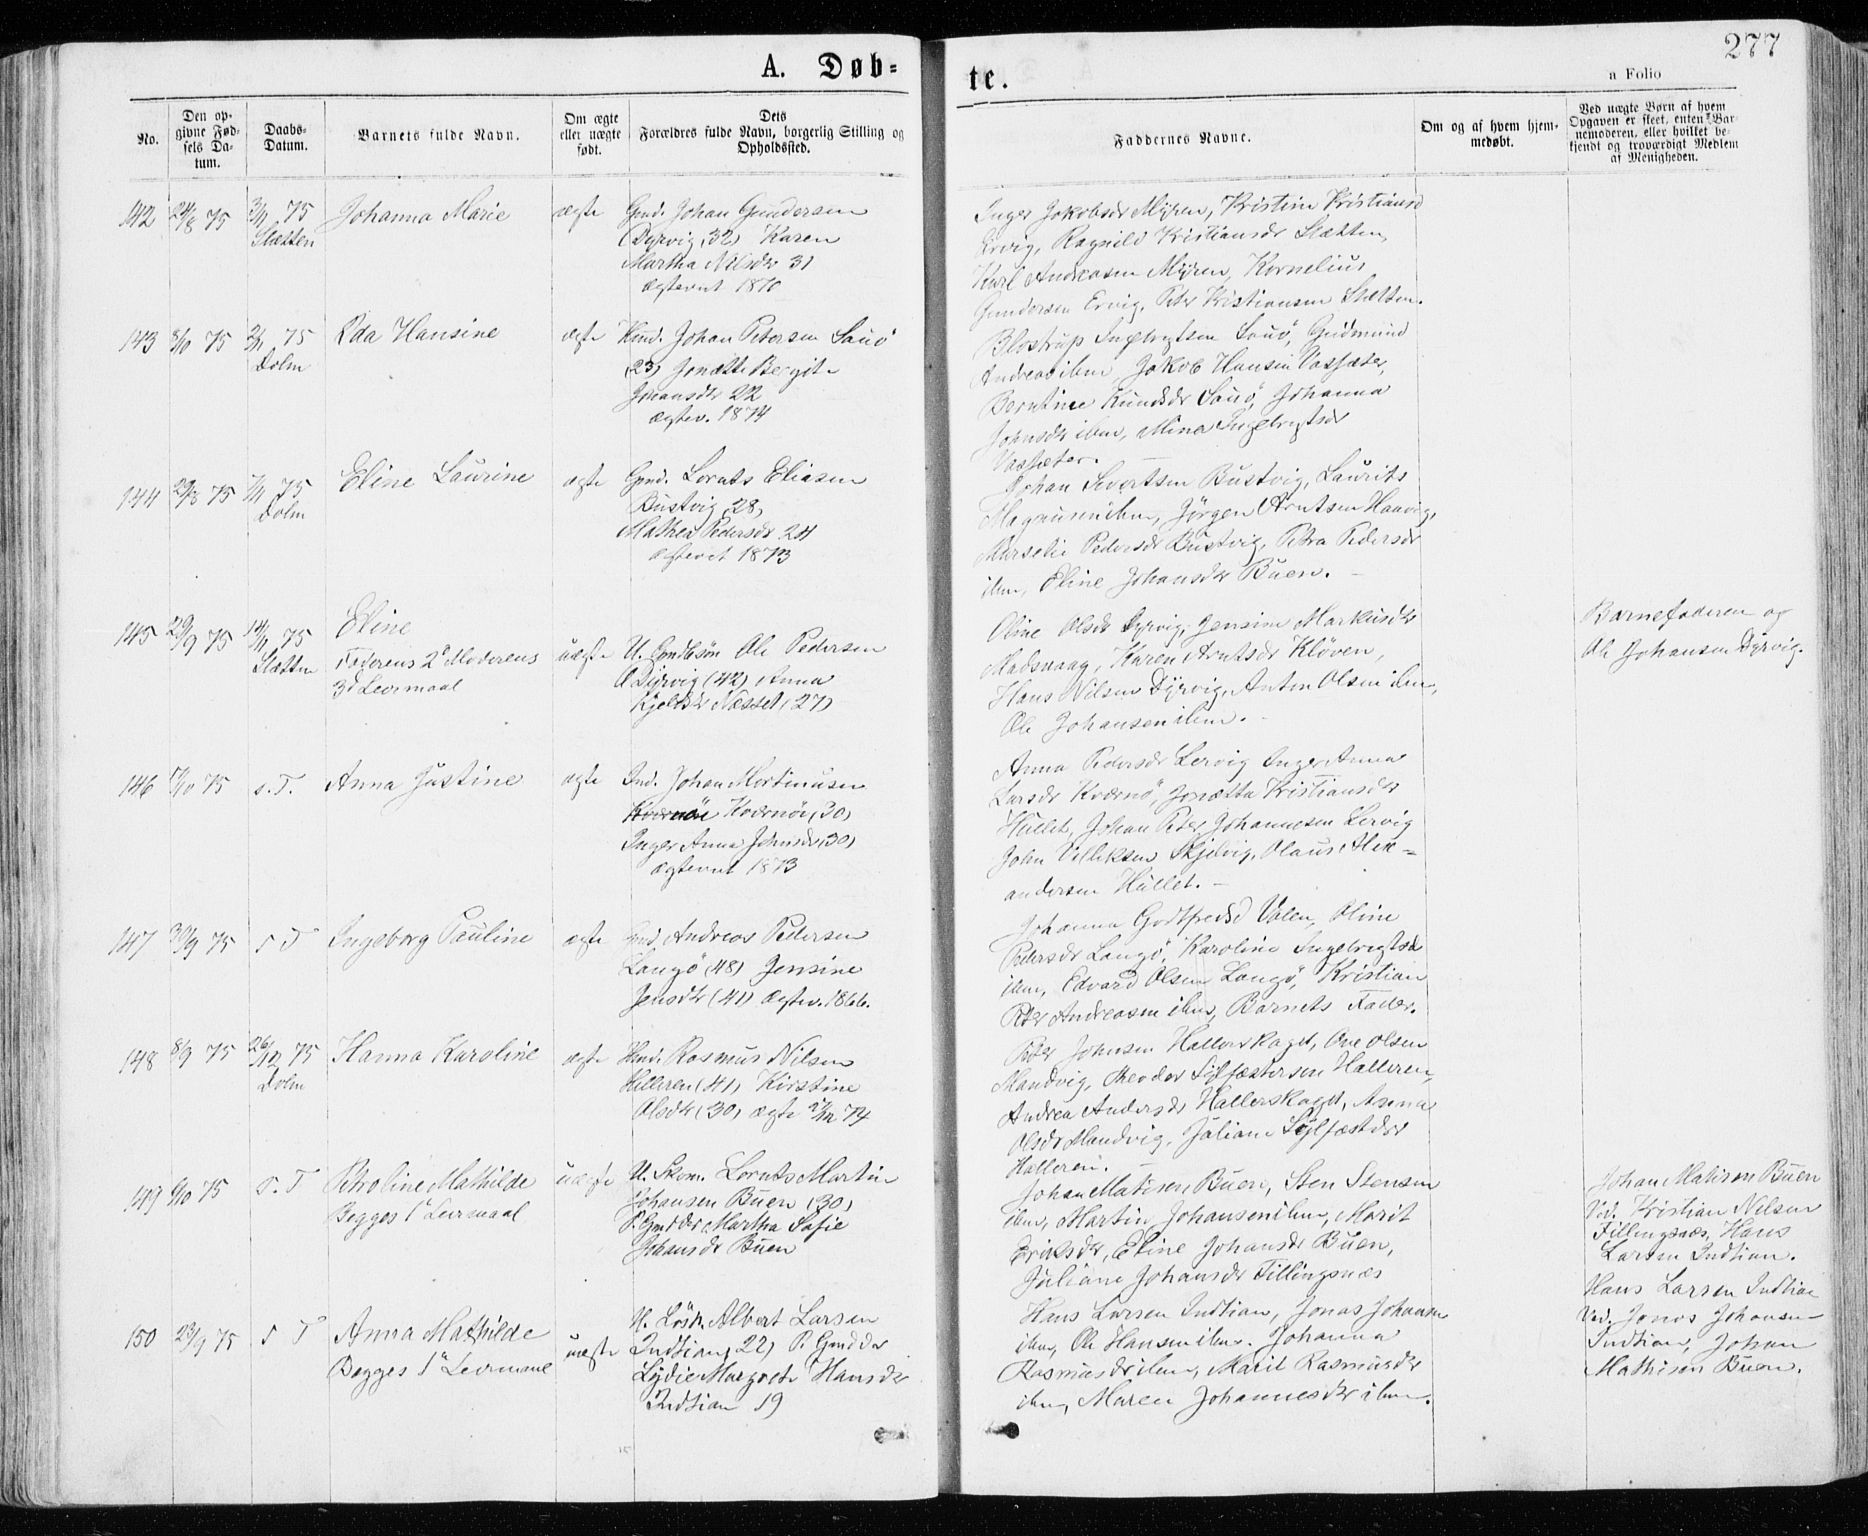 277
A. Døb-
te.
a Folio
No.
Den op-
givne Fød-
sels Da-
tum.
Daabs-
Datum.
Barnets fulde Navn.
Om ægte
eller uægte
født.
Dets
Forældres fulde Navn, borgerlig Stilling og
Opholdssted.
Faddernes Navne.
Om og af hvem hjem-
medøbt.
Ved uægte Børn af hvem
Opgaven er skeet, enten Bar-
nemoderen, eller hvilket be-
kjendt og troværdigt Medlem
af Menigheden.
142
24/8 75
75
Slætten
Johanna Marie
ægte
Gmd. Johan Gundersen
Dyrvig, 32) Karen
Martha Nilsdr 31
ægteviet 1870
Inger Jokobsdr Myren, Kristine Kristiansd
Ervig, Ragnild Kristiansdr Slætten,
Karl Andreasen Myren, Kornelius
Gundersen Ervig, Peter Kristiansen Slætten.
143
8/10 75
75
Dolm
Hansine
ægte
Johan Petersen Sauö
(23) Jonætte Bergite
Johansdr 22
ægtev. 1874
Blostrup Ingebrigtsen Sauö, Gudmund
Andreas ibm, Jakob Hansen Vasseter,
Berntine Knudsdr Sauö, Johanna
Johnsdr ibm, Mina Ingebrigtsdr
Vasseter.
144
29/8 75
7/11 75
Dolm
Eline Laurine
ægte
Gmd. Lornts Eliasen
Bustvig, 28,
Mathea Pedersdr 24
ægteviet 1873
Johan Sivertsen Bustvig, Laurits
Magnusen ibm, Jörgen Arntsen Haavig,
Marselie Pedersdr Bustvig, Petra Pedersdr
ibm, Eline Johansdr Buen.
145
29/9 75
14/11 75
Slætten
Eline
Faderens 2d Moderens
3d Leiermaal
uægte
U. Gmdssön Ole Pedersen
Dyrvig (42) Anna
Kjeldsdr Næsset (27)
Oline Olsdr Dyrvig, Jensine Markusdr
Madsvaag, Karen Arntsdr Klöven,
Hans Nilsen Dyrvig, Anton Olsen ibm,
Ole Johansen ibm.
Barnefaderen og
Ole Johansen Dyrvig.
146
17/10 75
s. T.
Anna Justine
ægte
Ind. Johan Martinusen
Kværnöe Kværnöe (30)
Inger Anna Johnsdr (30)
ægteviet 1873
Anna Pedersdr Lervig Inger Anna
Larsdr Kværnö, Jonætta Kristiansdr
Hullet, Johan Peter Johannesen Lervig
John Villiksen Skjelvig, Olaus Alex-
andersen Hullet.
147
30/9 75
s T
Ingeborg Pauline
ægte
Gmd Andreas Pedersen
Langö (48) Jensine
Jensdr (41) ægtev. 1866.
Johanna Godtfredsd Valen, Oline
Pedersdr Langö, Karoline Ingebrigtsdr
ibm, Edvard Olsen Langö, Kristian
Peter Andreasen ibm, Barnets Fader.
148
8/9 75
26/12 75
Dolm
Hanna Karoline
ægte
Hmd. Rasmus Nilsen
Helleren (41) Kirstine
Olsdr (30) ægte 74
Peter Johnsen Hallerskaget, Ove Olsen
Mandvig, Theodor Sylfæstersen Halleren,
Andrea Andersdr Hallerskaget, Anna
Olsdr Mandvig, Juliane Sylfæstdr
Halleren.
149
6/10 75
s. T
Petroline Mathilde
Begges 1d Leiermaal
uægte
U. Skom. Lornts Martin
Johansen Buen (30)
P. Gmddr Martha Sofie
Johansdr Buen
Johan Matisen Buen, Sten Stensen
ibm, Martin Johansen ibm, Marit
Eriksdr, Eline Johansdr Buen,
Juliane Johansdr Fillingsnæs
Johan Matisen Buen
Vid. Kristian Nilsen
Fillingsnæs, Hans
Larsen Indtian.
150
23/9 75
s T
Anna Mathilde
Begges 1d Leiermaal
uægte
U. Lösk. Albert Larsen
Indtian, 22) P. Gmddr
Lydie Margrete Hansdr
Indtian 19
Hans Larsen Indtian, Jonas Johansen
ibm, Ole Hansen ibm. Johanna
Rasmusdr ibm, Marit Rasmusdr
ibm, Maren Johannesdr ibm.
Hans Larsen Indtian
Vid. Jonas Johansen
Indtian, Johan
Mathisen Buen.